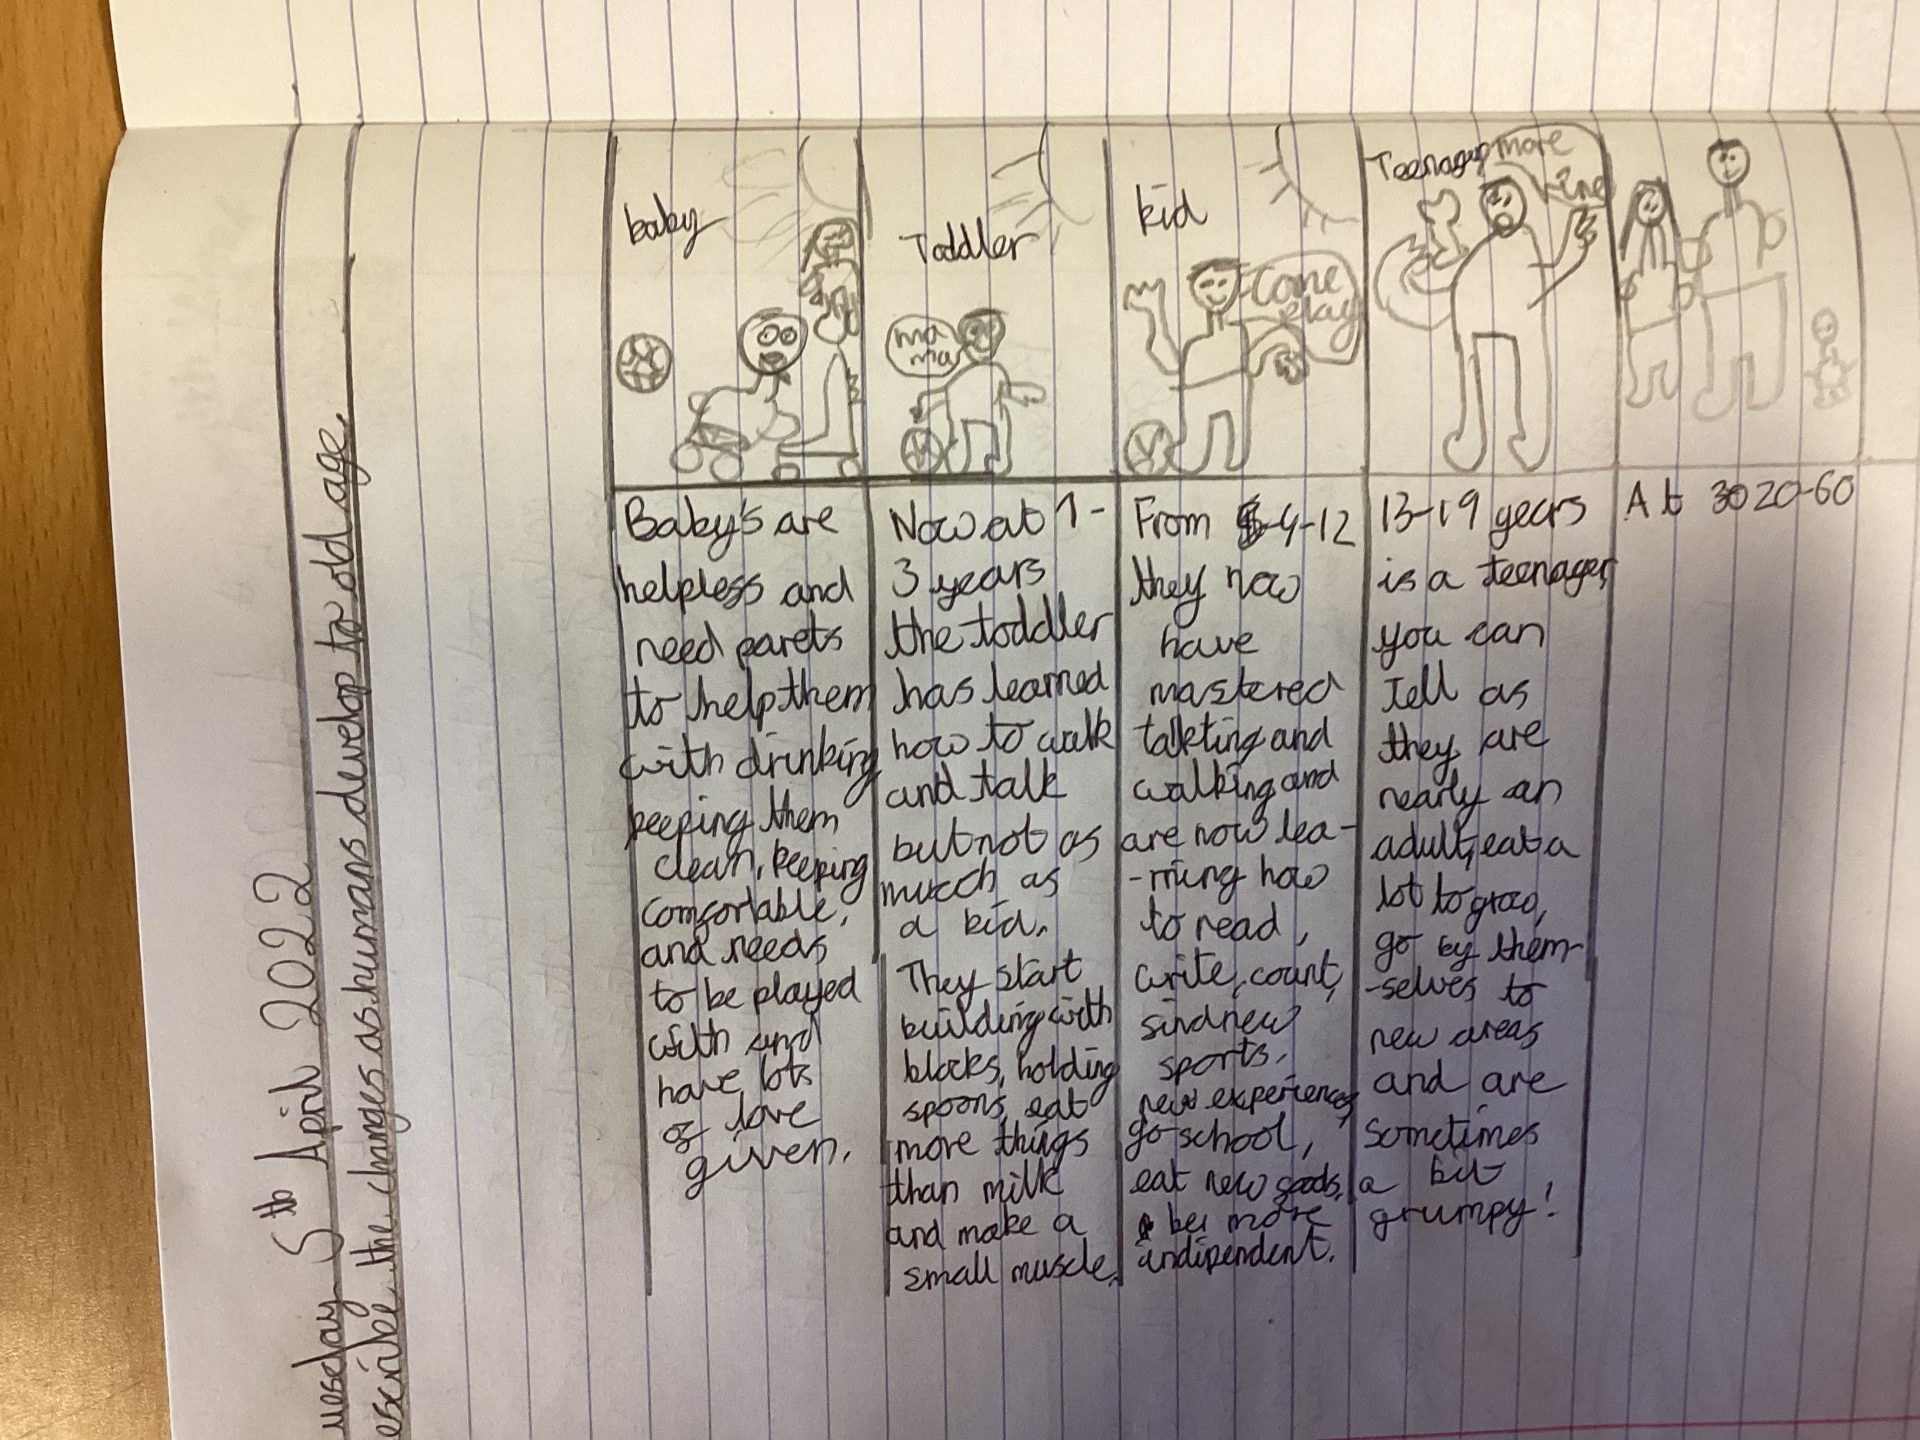 uesday 5th April 2022
escribe the changes as humans develop to old age.
baby
Baby's are
helpless and
need parets
to help them
with drinking
keeping them
clean, keeping
comfortable,
and needs
to be played
with and
have lots
of love
given.
Toddler
ma
ma
Now at 1-
3 years
the toddler
has learned
how to walk
and talk
but not as
mucch as
a kid.
They start
building with
blocks, holding
spoons, eat
more things
than milk
and make a
small muscle.
kid
Come
play
From 4-12
they now
have
mastered
talkting and
walking and
are now lea-
-rning how
to read,
write, count,
find new
sports,
new experiences,
go school,
eat new foods,
be more
indipendent.
Teenager
more
13-19 years
is a teenager,
you can
tell as
they are
nearly an
adult, eat a
lot to grow,
go by them-
-selves to
new areas
and are
sometimes
a bit
grumpy!
At 30 20-60